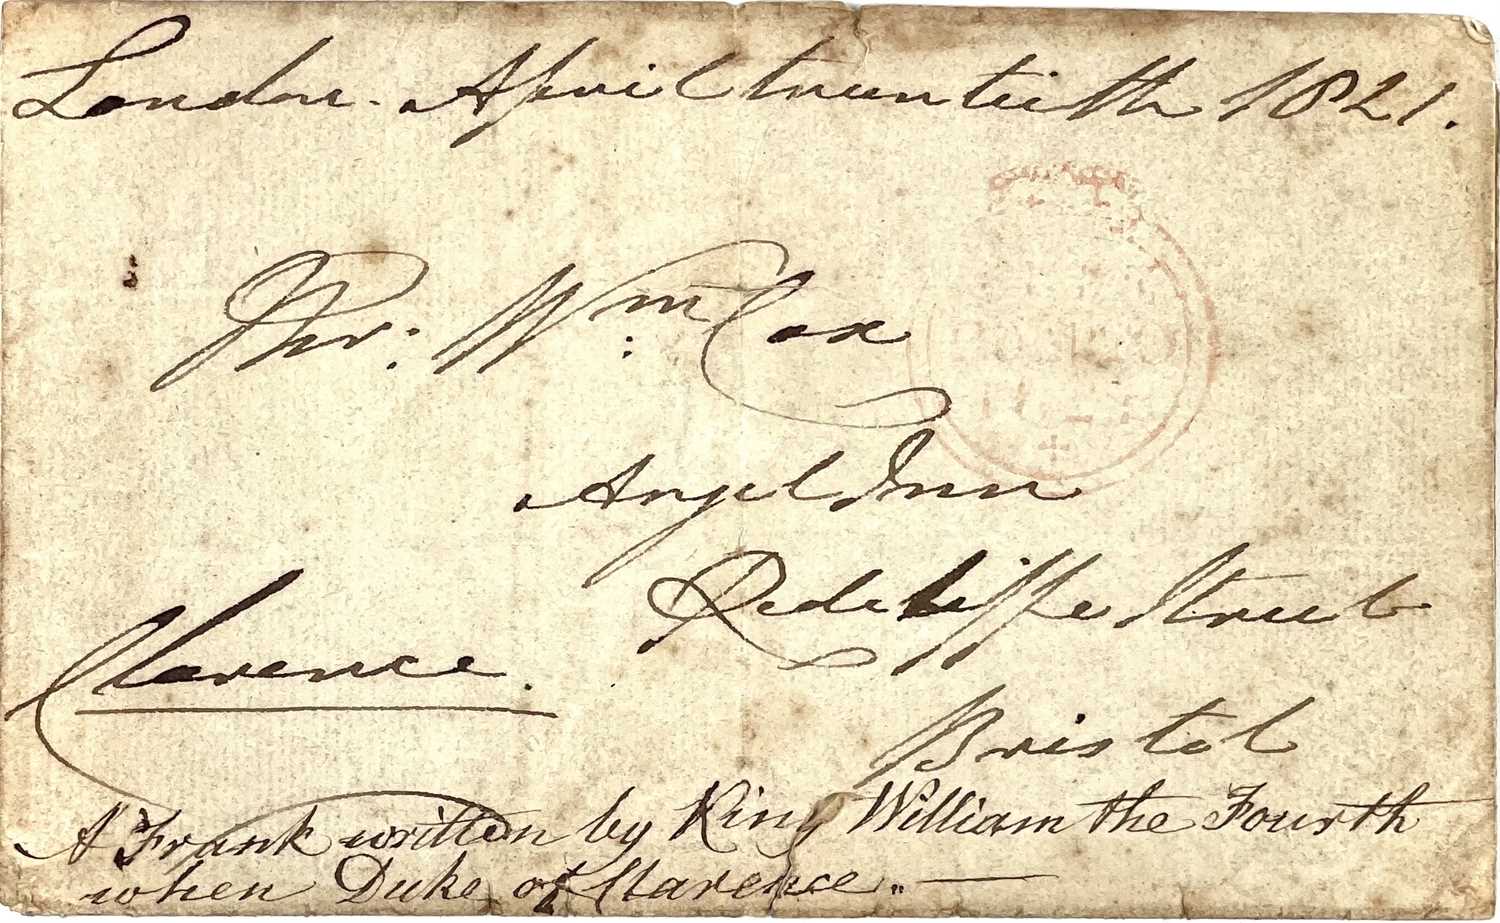 London April twentieth 1821.
Mr: Wm: Cox
Angel Inn
Redcliffe Street
Clarence.
Bristol
A Frank written by King William the Fourth
when Duke of Clarence.